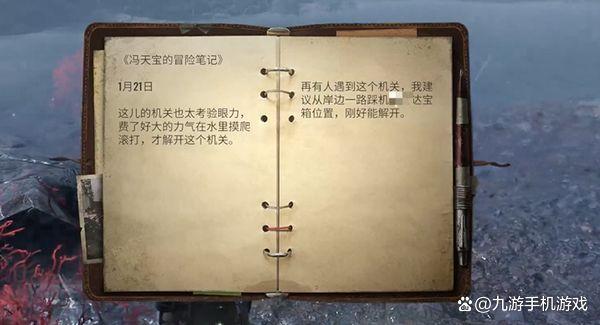 《冯天宝的冒险笔记》
1月21日
这儿的机关也太考验眼力，
费了好大的力气在水里摸爬
滚打，才解开这个机关。
再有人遇到这个机关，我建
议从岸边一路踩机 达宝
箱位置，刚好能解开。
@九游手机游戏